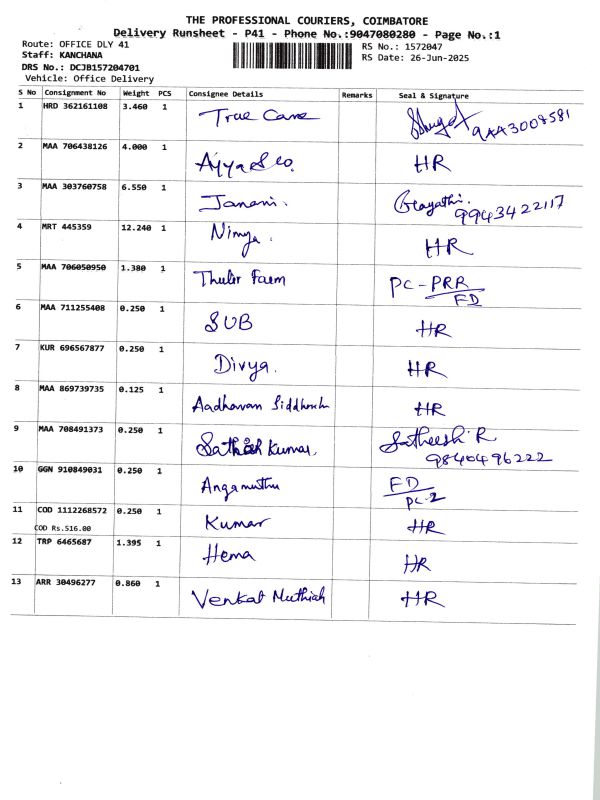 THE PROFESSIONAL COURIERS, COIMBATORE
Delivery Runsheet - P41 - Phone No.:9047080280 - Page No.:1
Route: OFFICE DLY 41
Staff: KANCHANA
DRS No.: DCJB157204701
Vehicle: Office Delivery
RS No.: 1572047
RS Date: 26-Jun-2025
S No Consignment No Weight PCS Consignee Details Remarks Seal & Signature
1 HRD 362161108 3.460 1 True Care 9AA3008581
2 MAA 706438126 4.000 1 Ajya & Co. HR
3 MAA 303760758 6.550 1 Janani. Gayathri.
9943422117
4 MRT 445359 12.240 1 Nimya. HR
5 MAA 706050950 1.380 1 Thulir Farm PC - PRR
FD
6 MAA 711255408 0.250 1 SUB HR
7 KUR 696567877 0.250 1 Divya. HR
8 MAA 869739735 0.125 1 Aadhavan HR
9 MAA 708491373 0.250 1 Sathish Kumar. Satheesh R
9840496222
10 GGN 910849031 0.250 1 Angamuthu FD
PC-2
11 COD 1112268572 0.250 1 Kumar HR
COD Rs.516.00
12 TRP 6465687 1.395 1 Hema HR
13 ARR 30496277 0.860 1 Venkat Muthiah HR